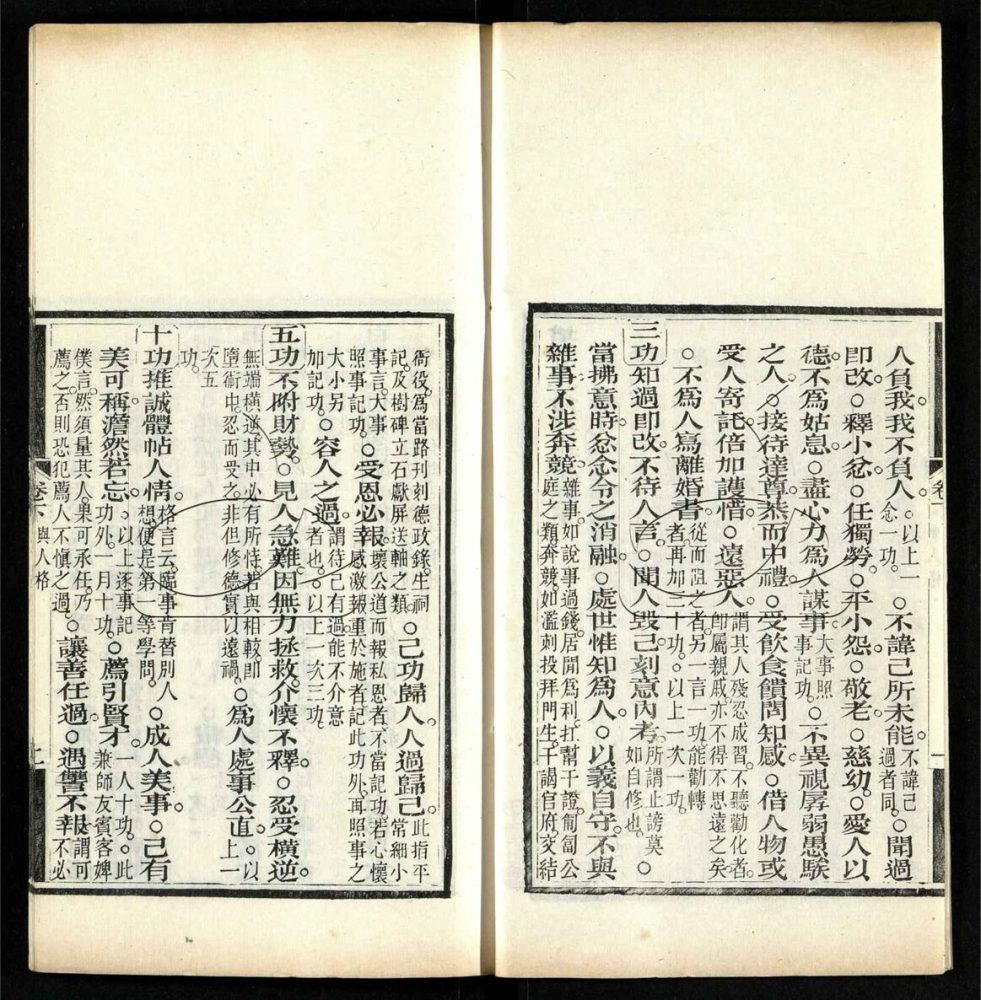 人負我我不負人。念一功。以上一○不諱己所未能。不諱己過者同。○聞過
即改。○釋小忿。○任獨勞。○平小怨。○敬老。○慈幼。○愛人以
德不爲姑息。○盡心力爲人謀事。大事照事記功。○不異視孱弱愚騃
之人。○接待達尊恭而中禮。○受飲食饋問知感。○借人物或
受人寄託倍加護惜。○遠惡人。謂其人殘忍成習。不聽勸化者。即屬親戚亦不得不思遠之矣
○不爲人寫離婚書。從而阻之者。另一言一功能勸轉者。再加二十功。○以上一次一功。
三功知過即改不待人言。○聞人毀己刻意內考。所謂止謗莫如自修也。○
當拂意時忿念令之消融。○處世惟知爲人。○以義自守。不與
雜事不涉奔競。雜事。如說事過錢。居閒爲利。扛幫干證。匍匐公庭之類。奔競。如濫刺投拜門生。干謁官府。交結
衙役。爲當路刊刻德政錄。生祠記。及樹碑立石獻屏送軸之類。○己功歸人人過歸己。此指平常細小
事言。大事照事記功。○受恩必報。壞公道而報私恩者。不當記功。若心懷感激報重於施者記此功外。再照事之
大小另加記功。○容人之過。謂待己有過能不介意者也。○以上一次三功。
五功不附財勢。○見人急難因無力拯救。介懷不釋。○忍受橫逆
無端橫逆。其中必有所恃。若與相較即墮術中。忍而受之。非但修德。實以遠禍。○爲人處事公直。○以上一次五
功。
十功推誠體帖人情。格言云。臨事肯替別人想。便是第一等學問。○成人美事。○己有
美可稱。澹然若忘。功外。一月十功。○以上逐事記○薦引賢才。一人十功。此兼師友賓客婢
僕言。然須量其人。果可承任。乃薦之。否則恐犯薦人不愼之過。○讓善任過。○遇讐不報。謂可不必
卷下
與人格